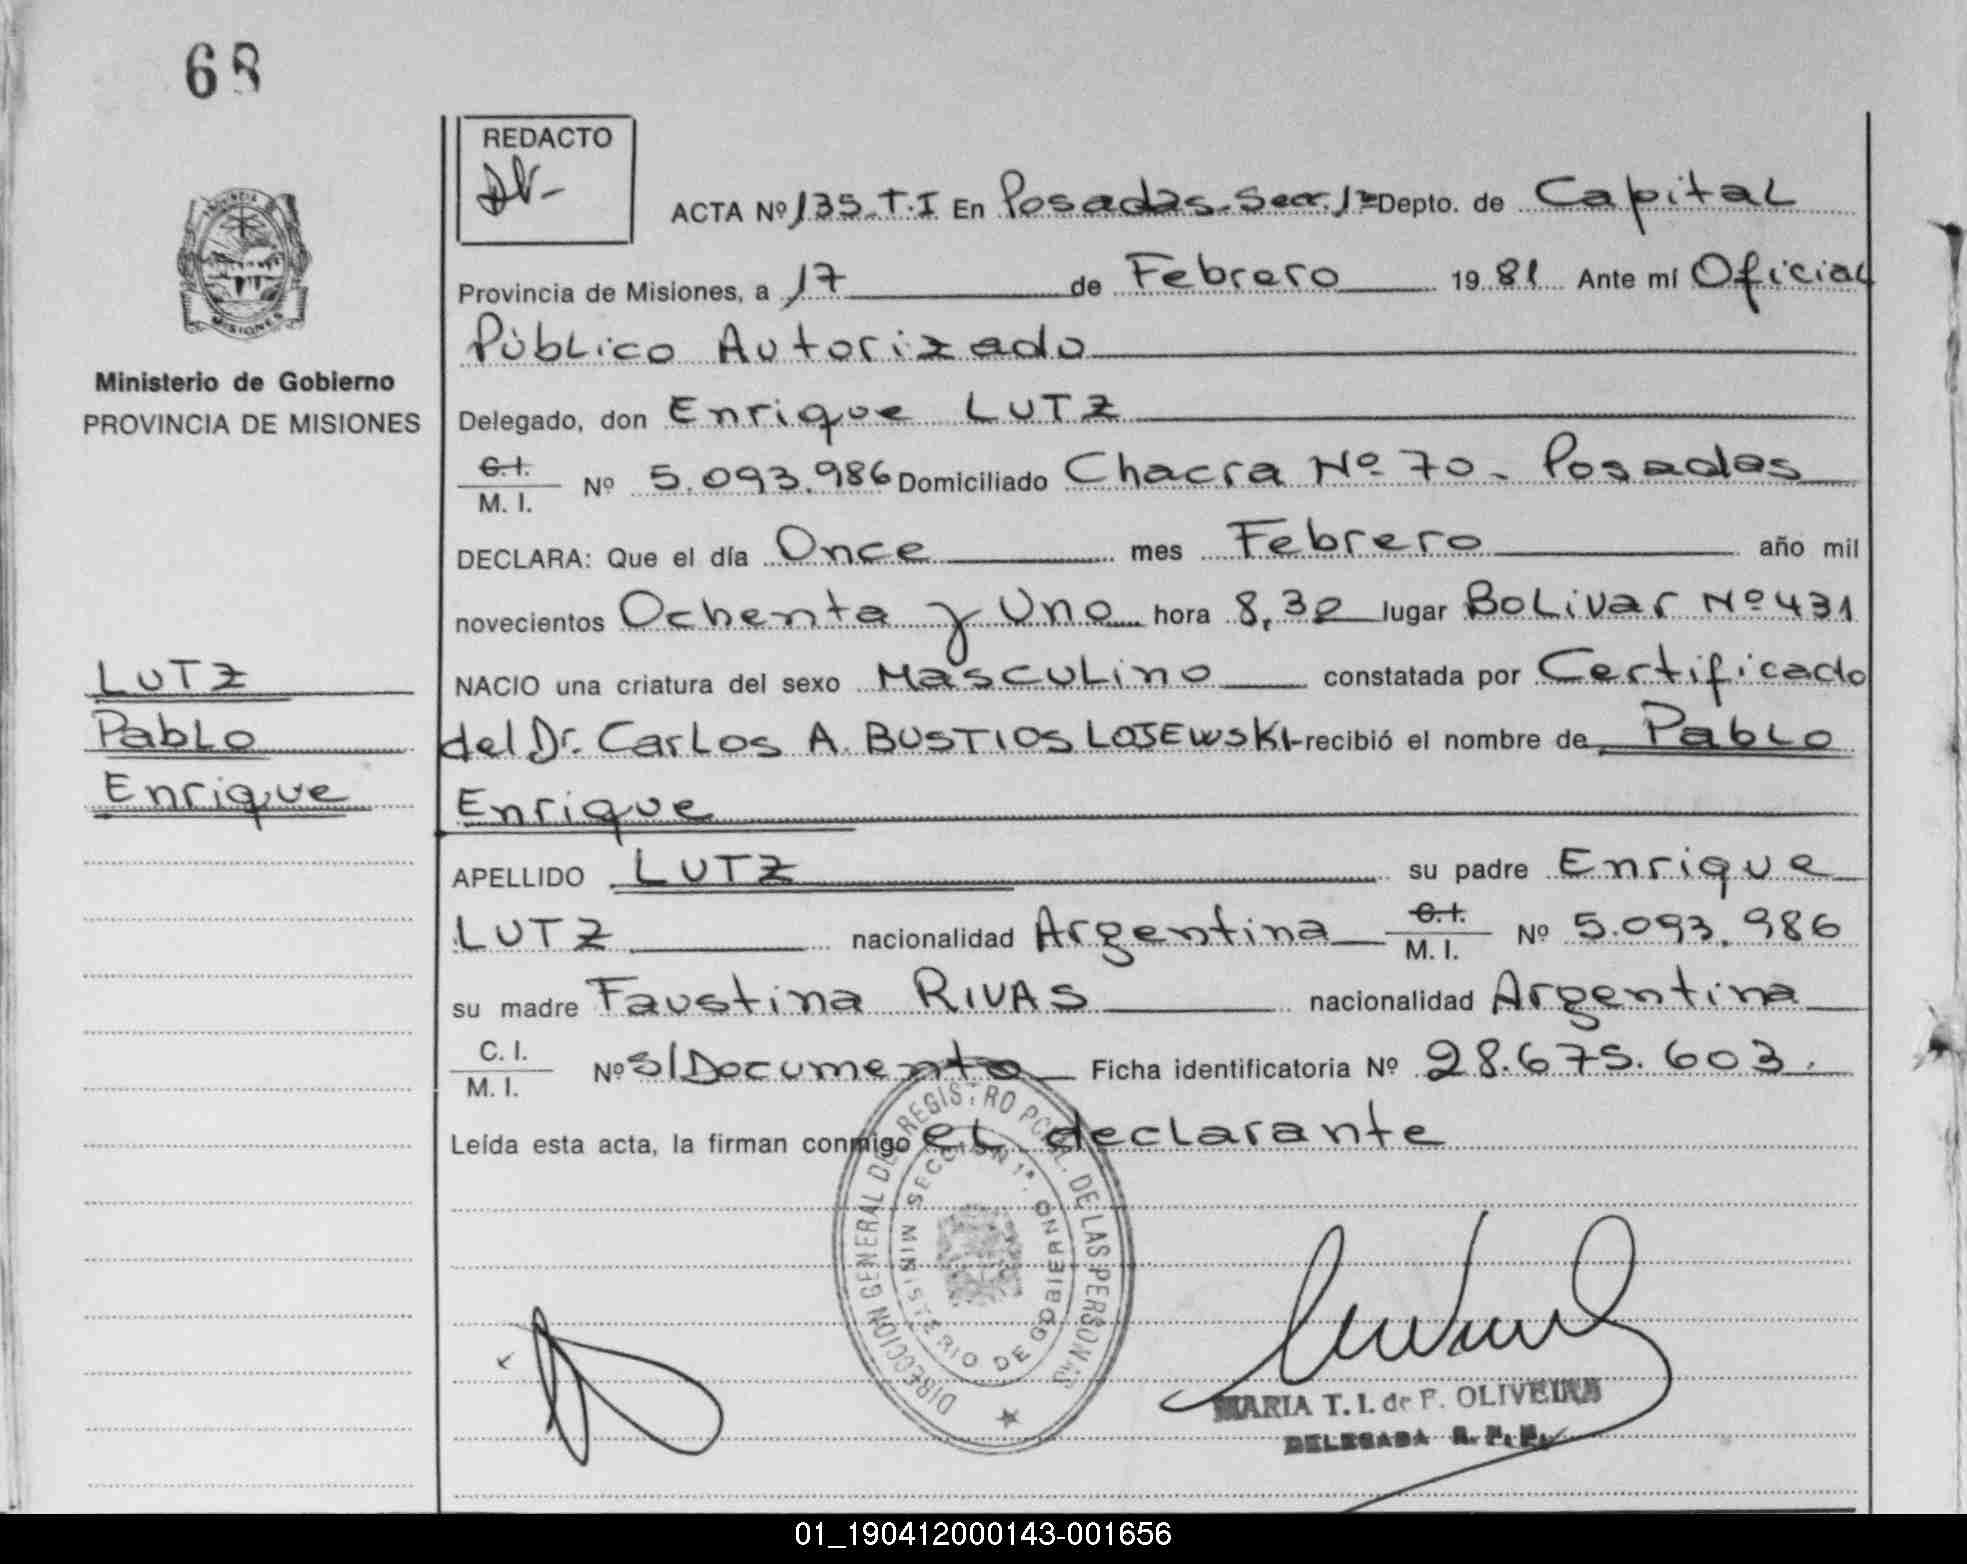 68
REDACTO
PROVINCIA
MISIONES
Ministerio de Gobierno
PROVINCIA DE MISIONES
ACTA Nº 135.T.I En Posadas-Secc.1ª Depto. de Capital
Provincia de Misiones, a 17 de Febrero 1981 Ante mí Oficial
Público Autorizado
Delegado, don Enrique LUTZ
C.I.
M. I. Nº 5.093.986 Domiciliado Chacra Nº 70- Posadas
DECLARA: Que el día Once mes Febrero año mil
novecientos Ochenta y Uno hora 8,30 lugar BoLivar Nº 431
NACIO una criatura del sexo MascuLino constatada por Certificado
del Dr. CarLos A. BUSTIOS LOJEWSKI- recibió el nombre de PabLo
Enrique
LUTZ
PabLo
Enrique
APELLIDO LUTZ su padre Enrique
LUTZ nacionalidad Argentina C.I. M. I. Nº 5.093.986
su madre Faustina RIVAS nacionalidad Argentina
C. I.
M. I. Nº S/Documento Ficha identificatoria Nº 28.675.603.
Leída esta acta, la firman conmigo eL decLarante
DIRECCION GENERAL DEL REGISTRO PCIAL. DE LAS PERSONAS
SECCION 1ª. MINISTERIO DE GOBIERNO
MARIA T. I. de F. OLIVEIRA
DELEGADA R. P. P.
01_190412000143-001656